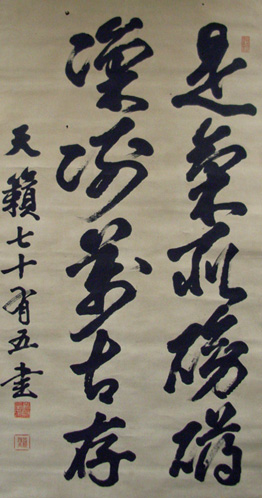 是氣所磅礴
凜冽萬古存
天籟七十有五書